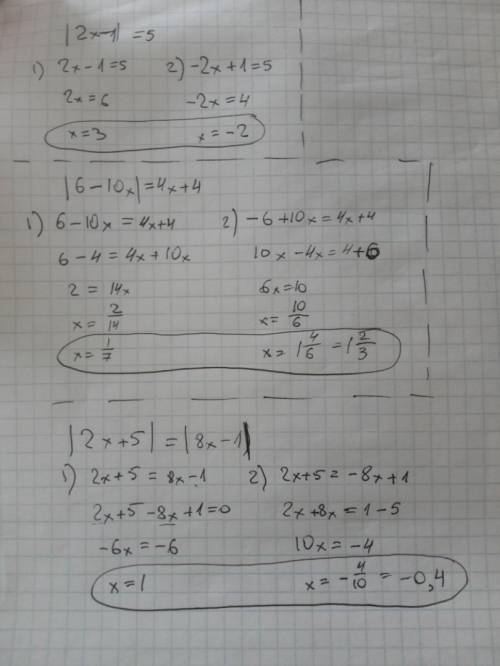 |2x-1| = 5
1) 2x-1=5 2) -2x+1=5
2x=6 -2x=4
x=3 x=-2
|6-10x|=4x+4
1) 6-10x=4x+4 2) -6+10x=4x+4
6-4=4x+10x 10x-4x=4+6
2=14x 6x=10
x=2/14 x=10/6
x=1/7 x=1 4/6 =1 2/3
|2x+5|=|8x-1|
1) 2x+5=8x-1 2) 2x+5=-8x+1
2x+5-8x+1=0 2x+8x=1-5
-6x=-6 10x=-4
x=1 x=-4/10=-0,4